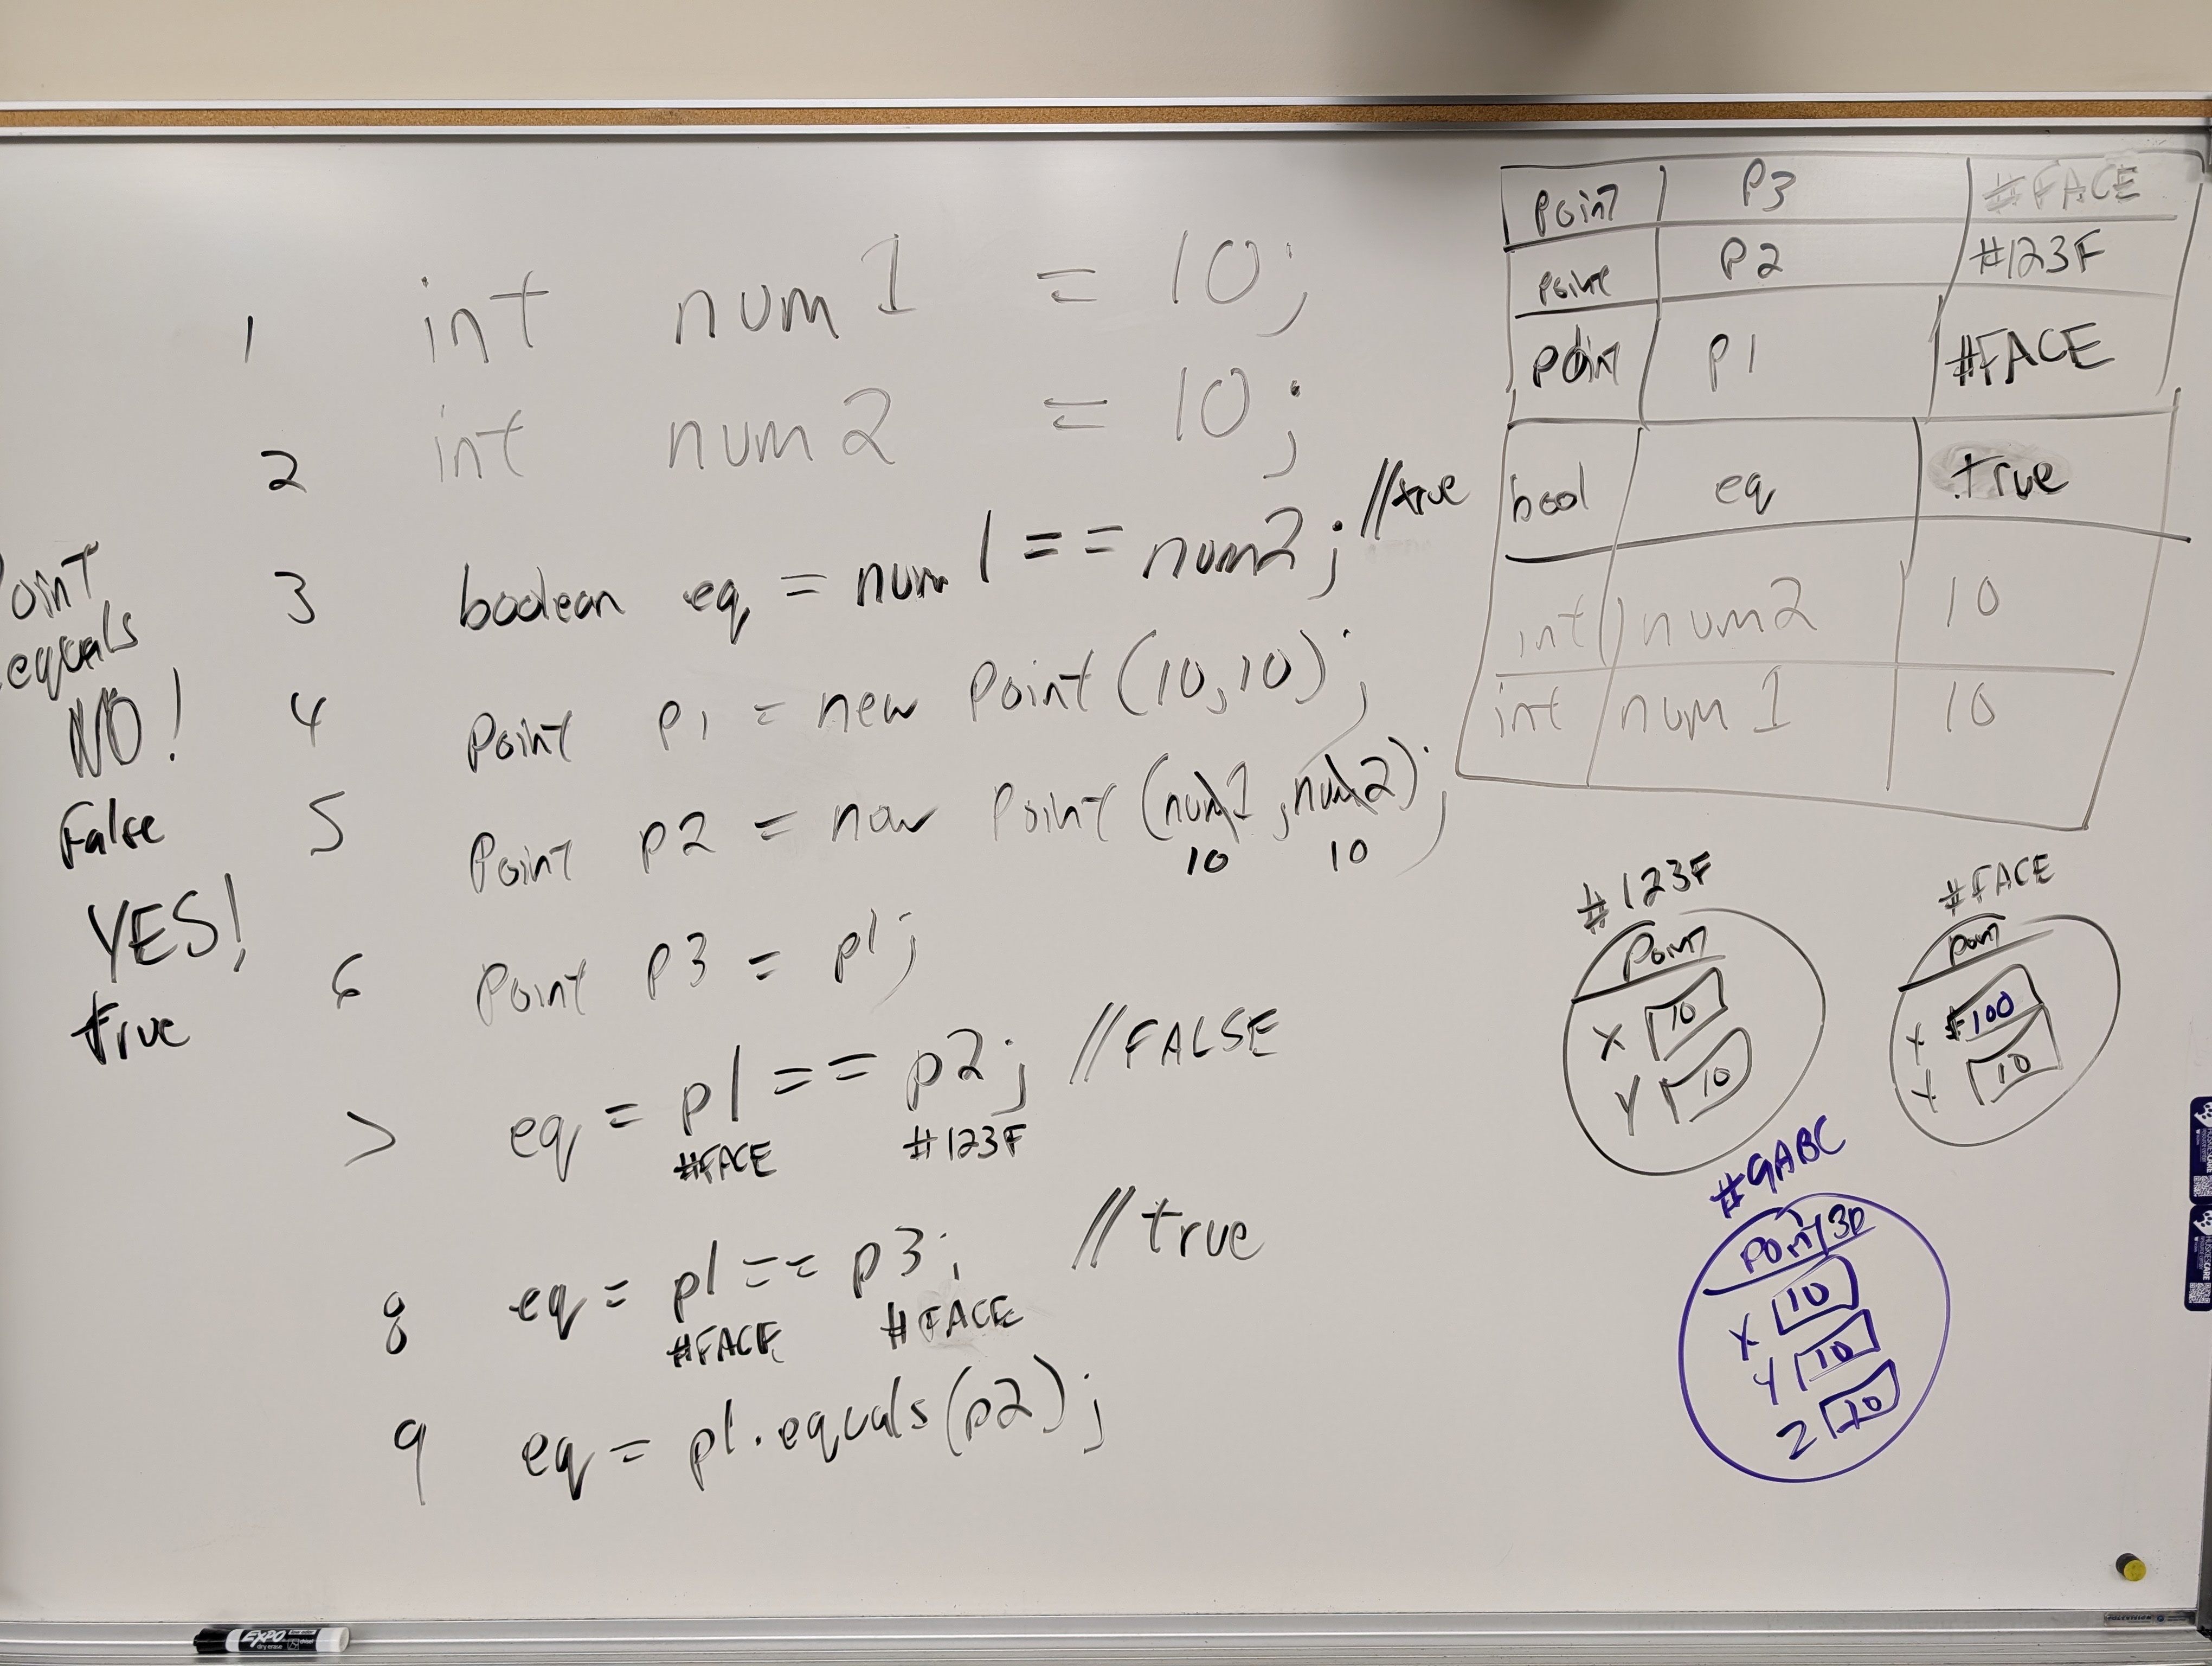 1 int num1 = 10;
2 int num2 = 10;
3 boolean eq = num1 == num2; //true
4 Point p1 = new Point(10,10);
5 Point p2 = new Point(num1,num2);
10 10
6 Point p3 = p1;
7 eq = p1 == p2; //FALSE
#FACE #123F
8 eq = p1 == p3; //true
#FACE #FACE
9 eq = p1.equals(p2);
oint
equals
NO!
False
YES!
true
Point P3 #FACE
Point P2 #123F
Point P1 #FACE
bool eq true
int num2 10
int num1 10
#123F
Point
X 10
Y 10
#FACE
Point
100
Y 10
#9ABC
Point3D
X 10
Y 10
Z 20
EXPO
dry erase